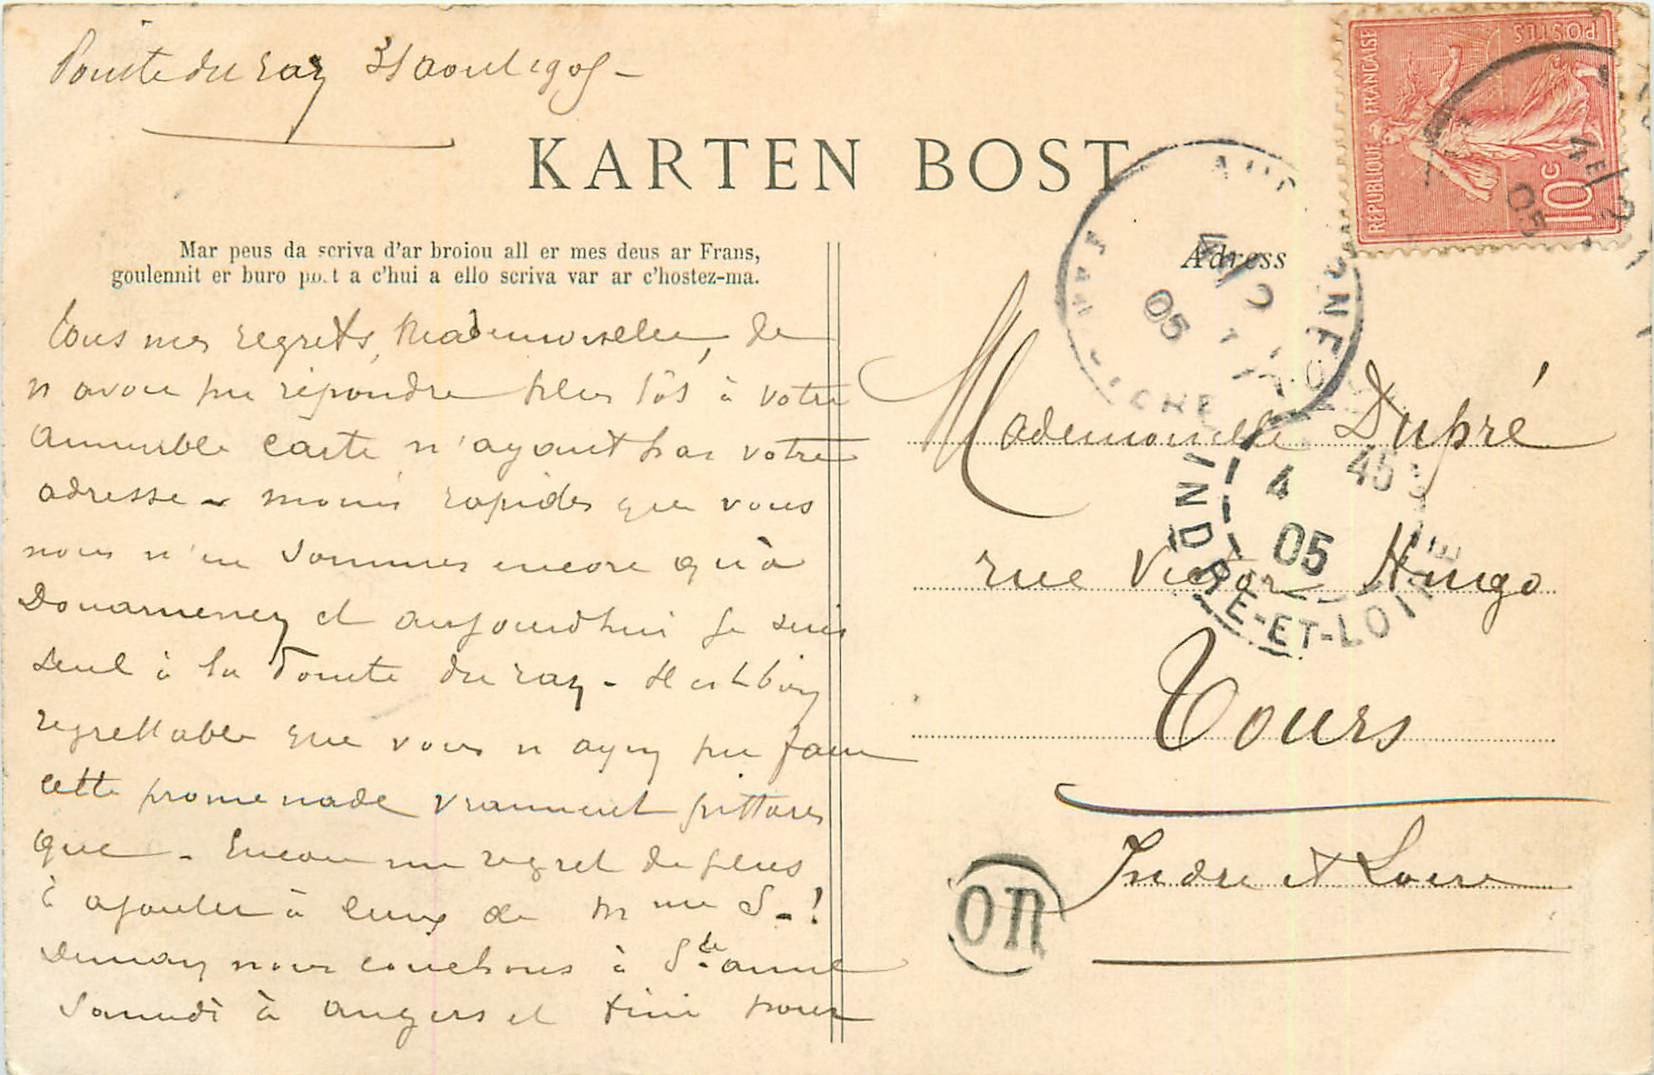 Pointe du raz 31 aout 1905 –
KARTEN BOST
Mar peus da scriva d'ar broiou all er mes deus ar Frans,
goulennit er buro post a c'hui a ello scriva var ar c'hostez-ma.
Adress
RÉPUBLIQUE FRANÇAISE
POSTES
10c
Tous mes regrets, Mademoiselle, de
n avoir pu répondre plus tôt à votre
aimable carte n'ayant pas votre
adresse – moins rapides que vous
nous n'en sommes encore qu'à
Douarnenez et aujourdhui je suis
seul à la Pointe du raz – Il est bien
regrettable que vous n ayez pu faire
cette promenade vraiment pittores
que – Encore un regret de plus
à ajouter à ceux de Mme S– !
Demain nous couchons à Ste anne
Samedi à Angers et fini pour
Mademoiselle Dupré
rue Victor Hugo
Tours
Indre et Loire
05
4 45
05
INDRE-ET-LOIRE
OR
05